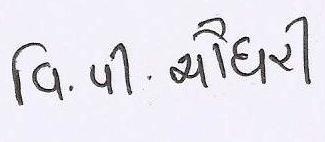 વિ. પી. ચૌધરી